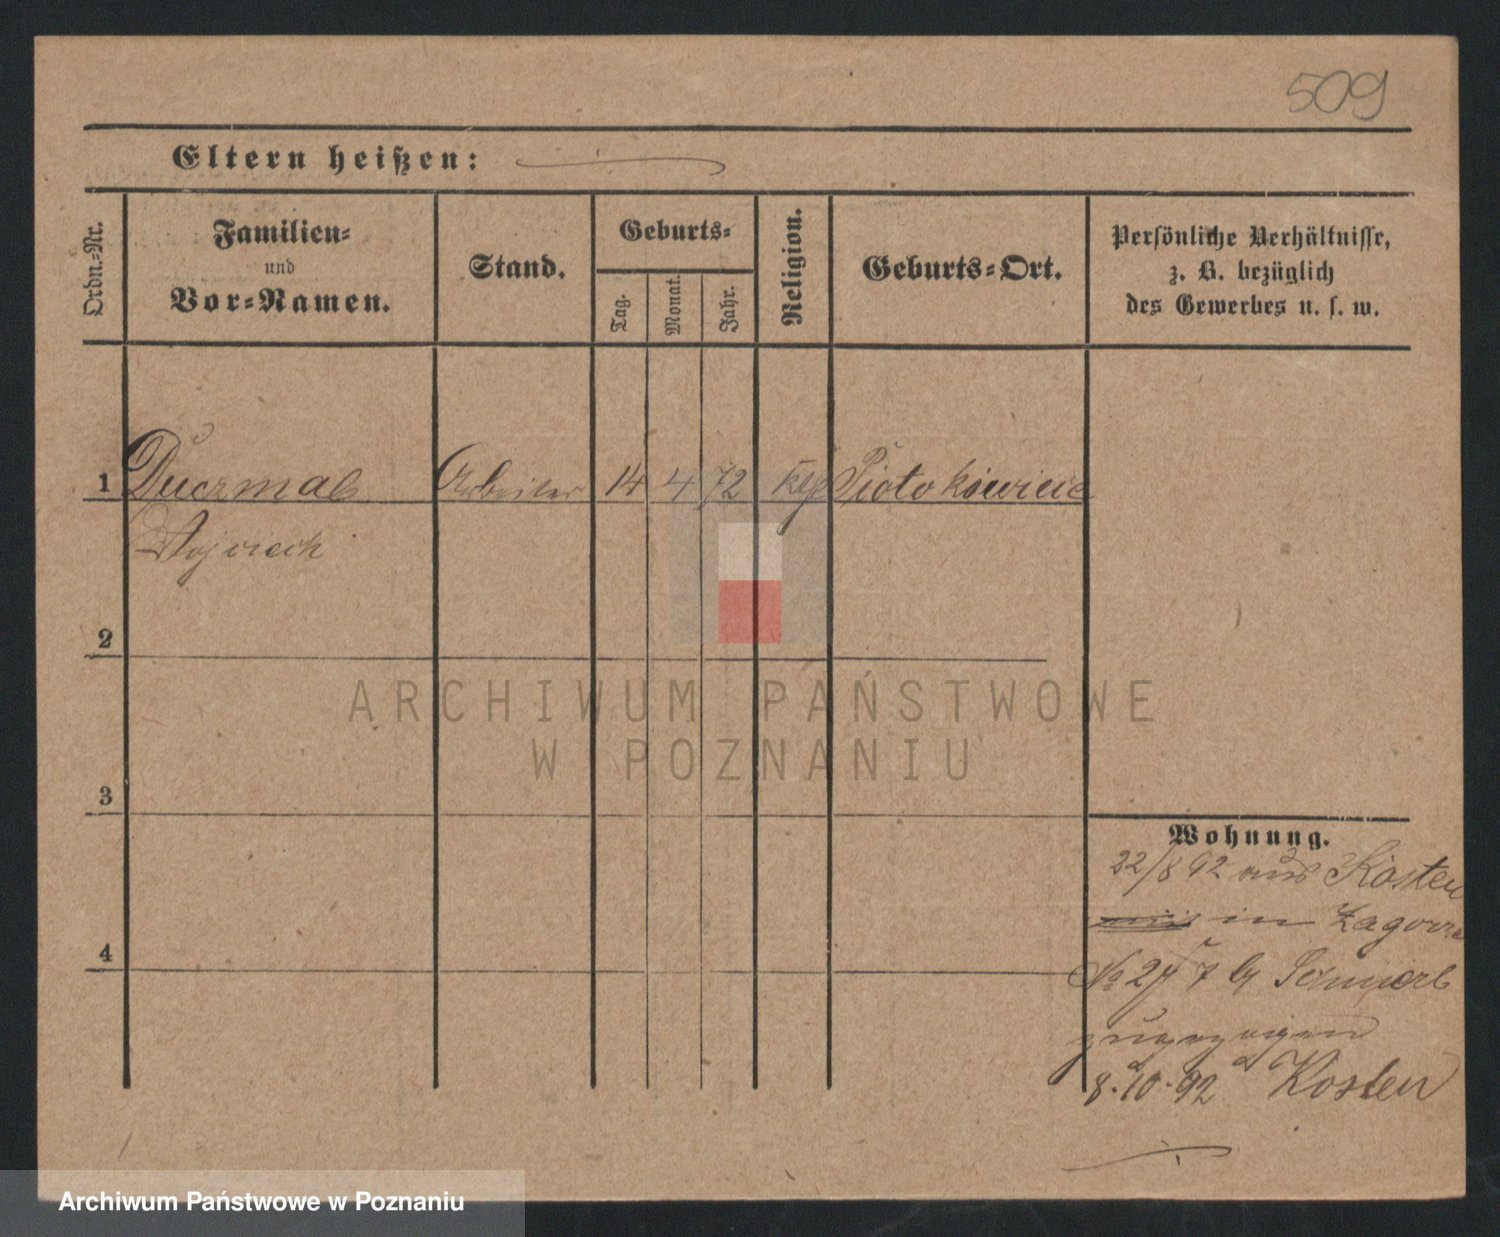 509
Eltern heißen:
Ordn.-Nr.
Familien-
und
Vor-Namen.
Stand.
Geburts-
Tag.
Monat.
Jahr.
Religion.
Geburts-Ort.
Persönliche Verhältnisse,
z. B. bezüglich
des Gewerbes u. s. w.
1 Duczmal Arbeiter 14 4 72 kth Piotrkowice
Wojciech
2
ARCHIWUM PAŃSTWOWE
W POZNANIU
3
Wohnung.
22/8 92 aus Kosten
in Zagorze
4
No 2/7 b/
zugezogen
8.10.92 Kosten
Archiwum Państwowe w Poznaniu